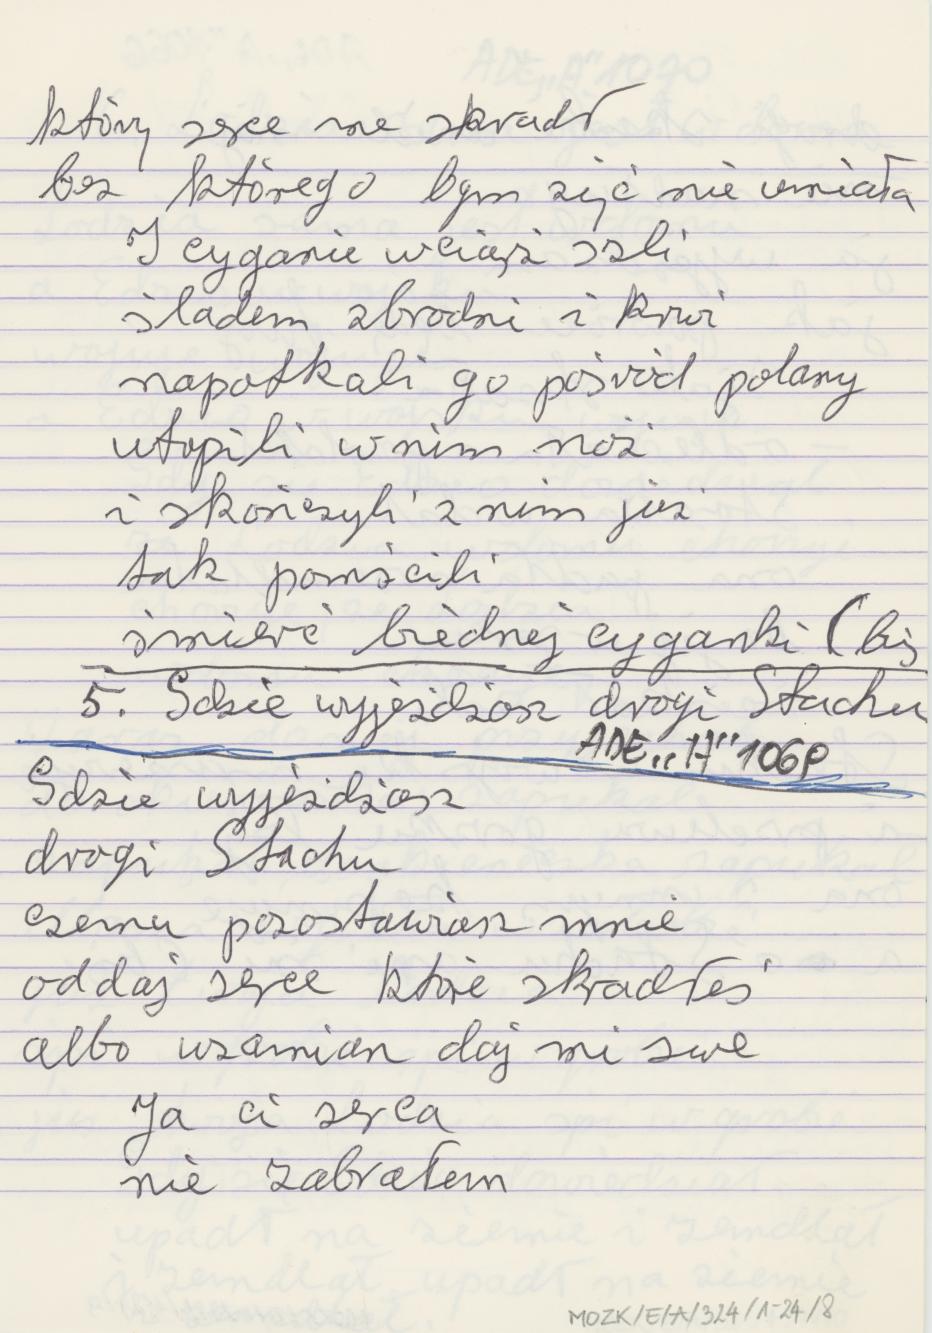 który serce me skradł
bez którego bym żyć nie umiała
I cyganie wciąż szli
śladem zbrodni i krwi
napotkali go pośród polany
utopili w nim nóż
i skończyli z nim już
tak pomścili
śmierć biednej cyganki (bis
5. Gdzie wyjeżdżasz drogi Stachu
ADE „A" 106P
Gdzie wyjeżdżasz
drogi Stachu
czemu pozostawiasz mnie
oddaj serce które skradłeś
albo wzamian daj mi swe
Ja ci serca
nie zabrałem
MOZK/E/A/324/1-24/8